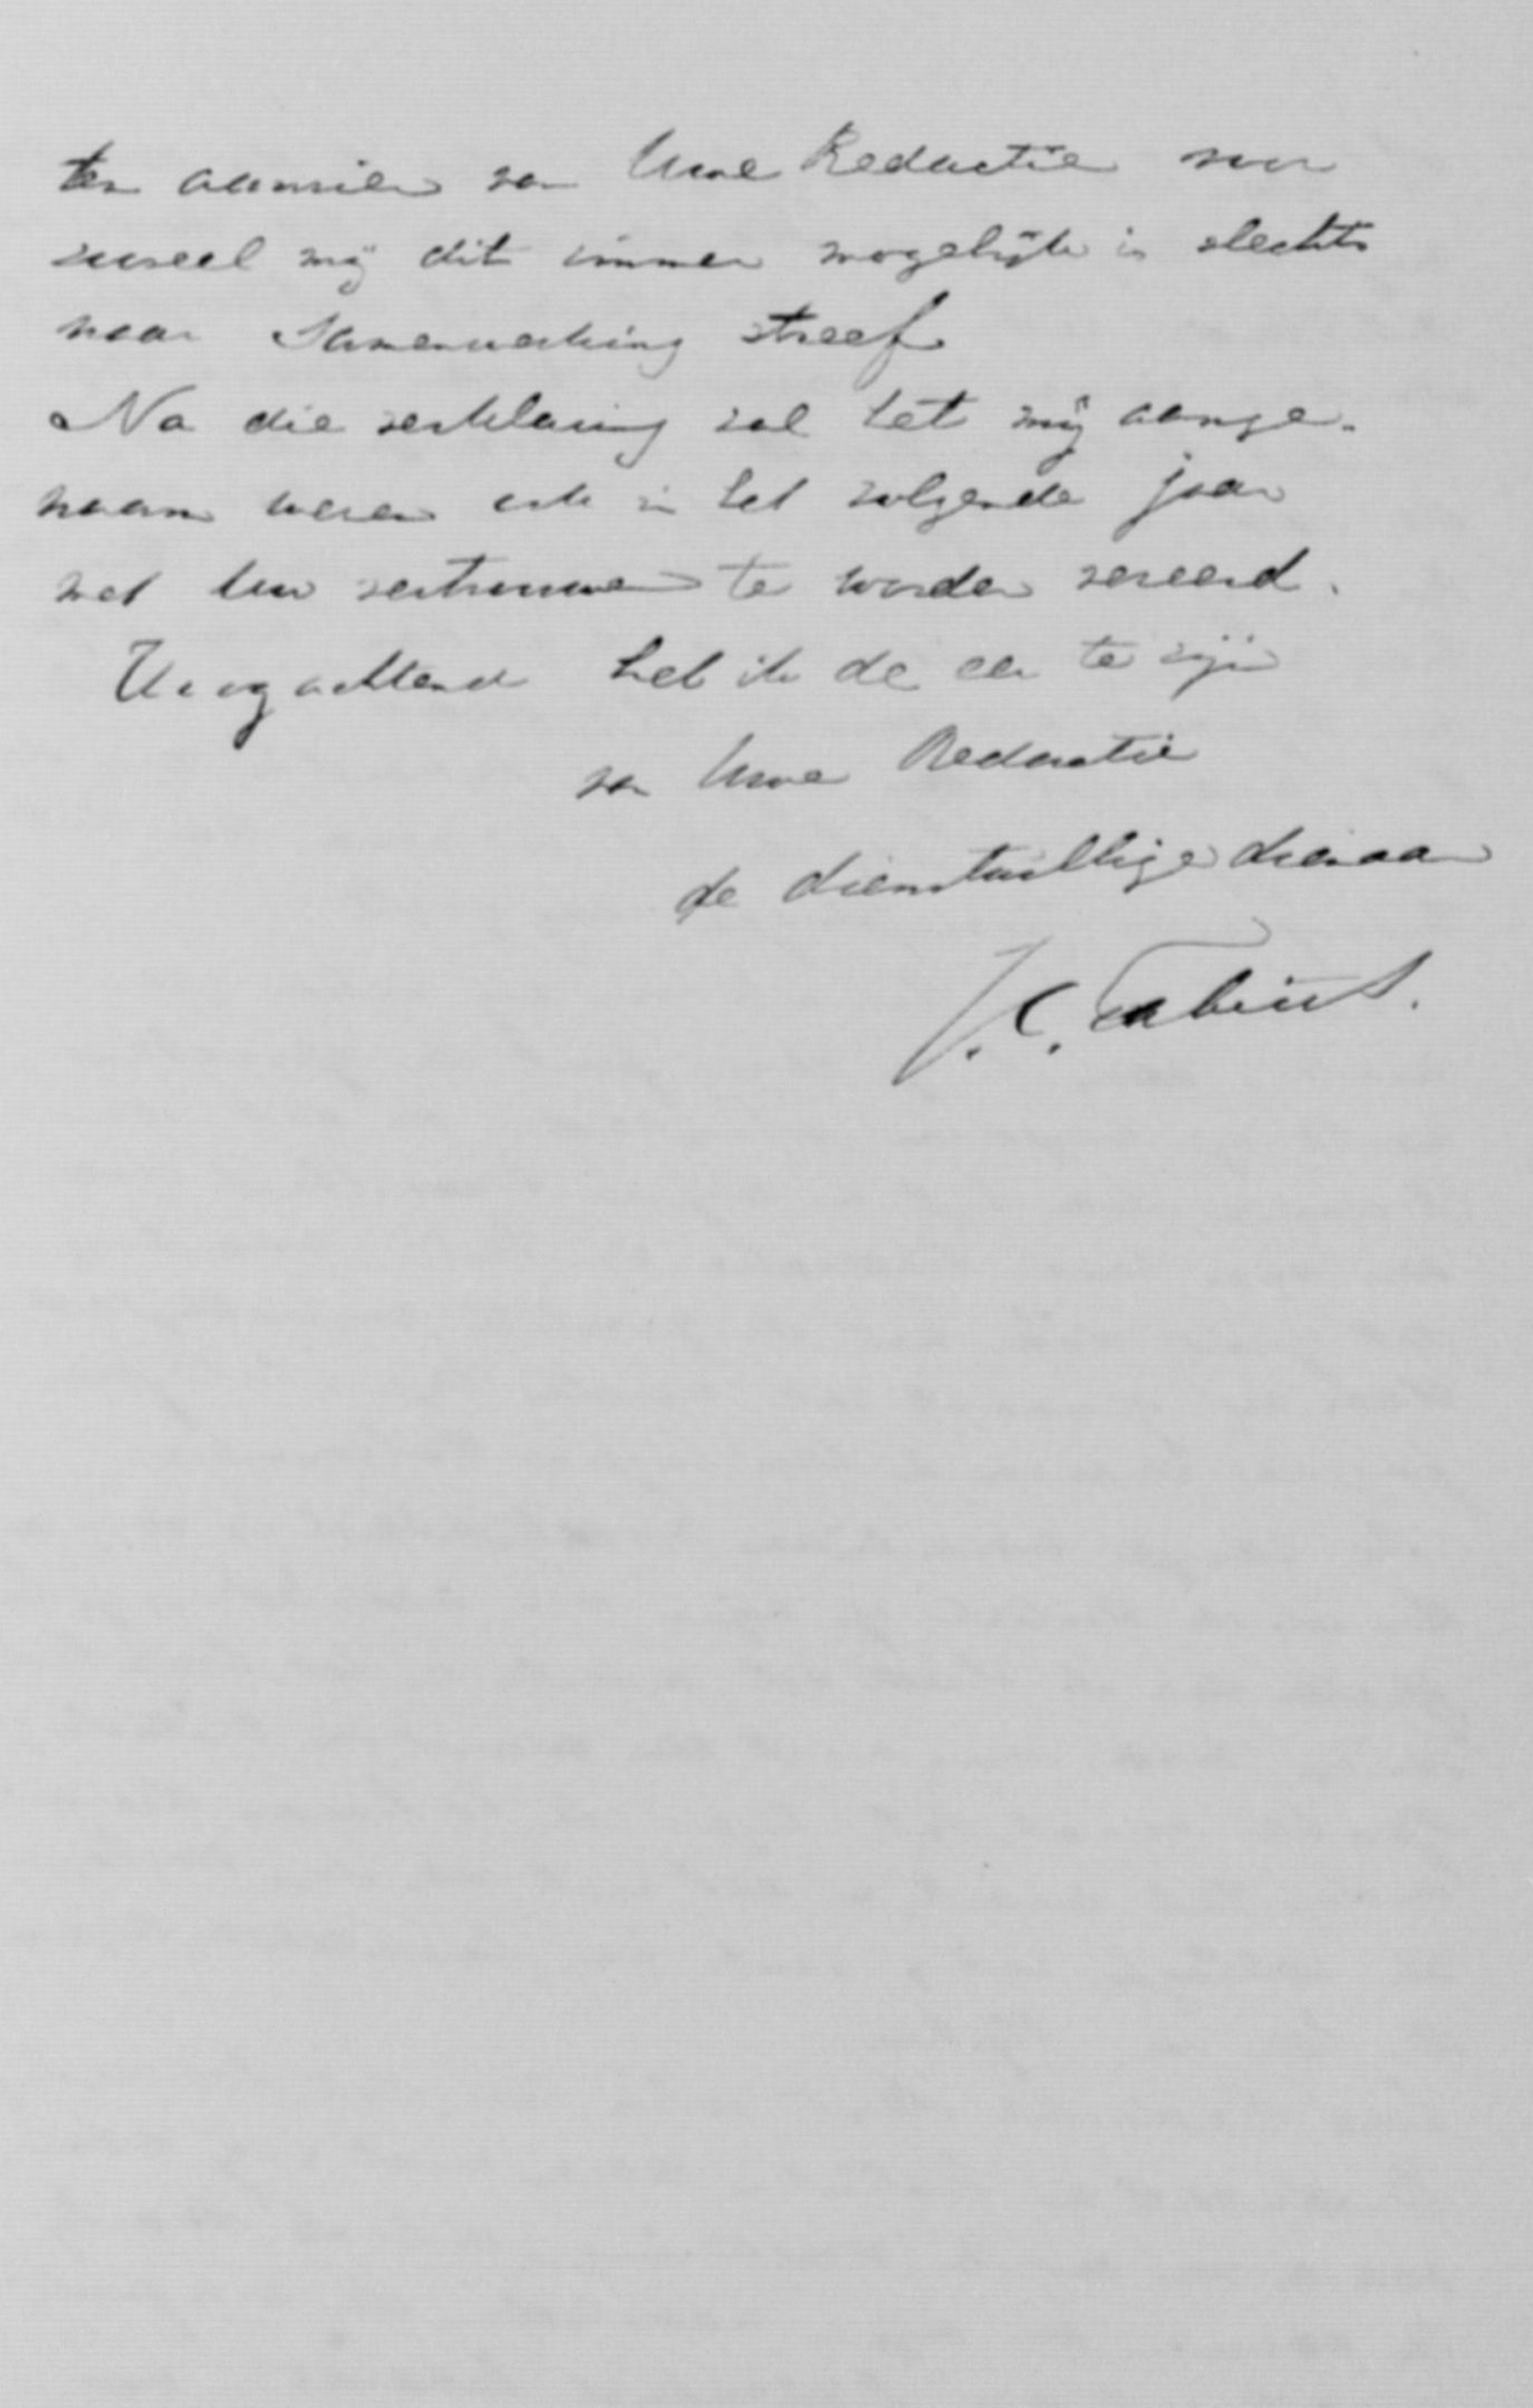 ten aanzien van Uwe Redactie voor
zooveel mij dit immer mogelijk is slechts
naar Samenwerking streef
Na die verklaring zal het mij aange-
naam wezen ook in het volgende jaar
met Uw vertrouwen te worden vereerd.
Hoogachtend heb ik de eer te zijn
van Uwe Redactie
de dienstwillige dienaar
J.C. Fabius.